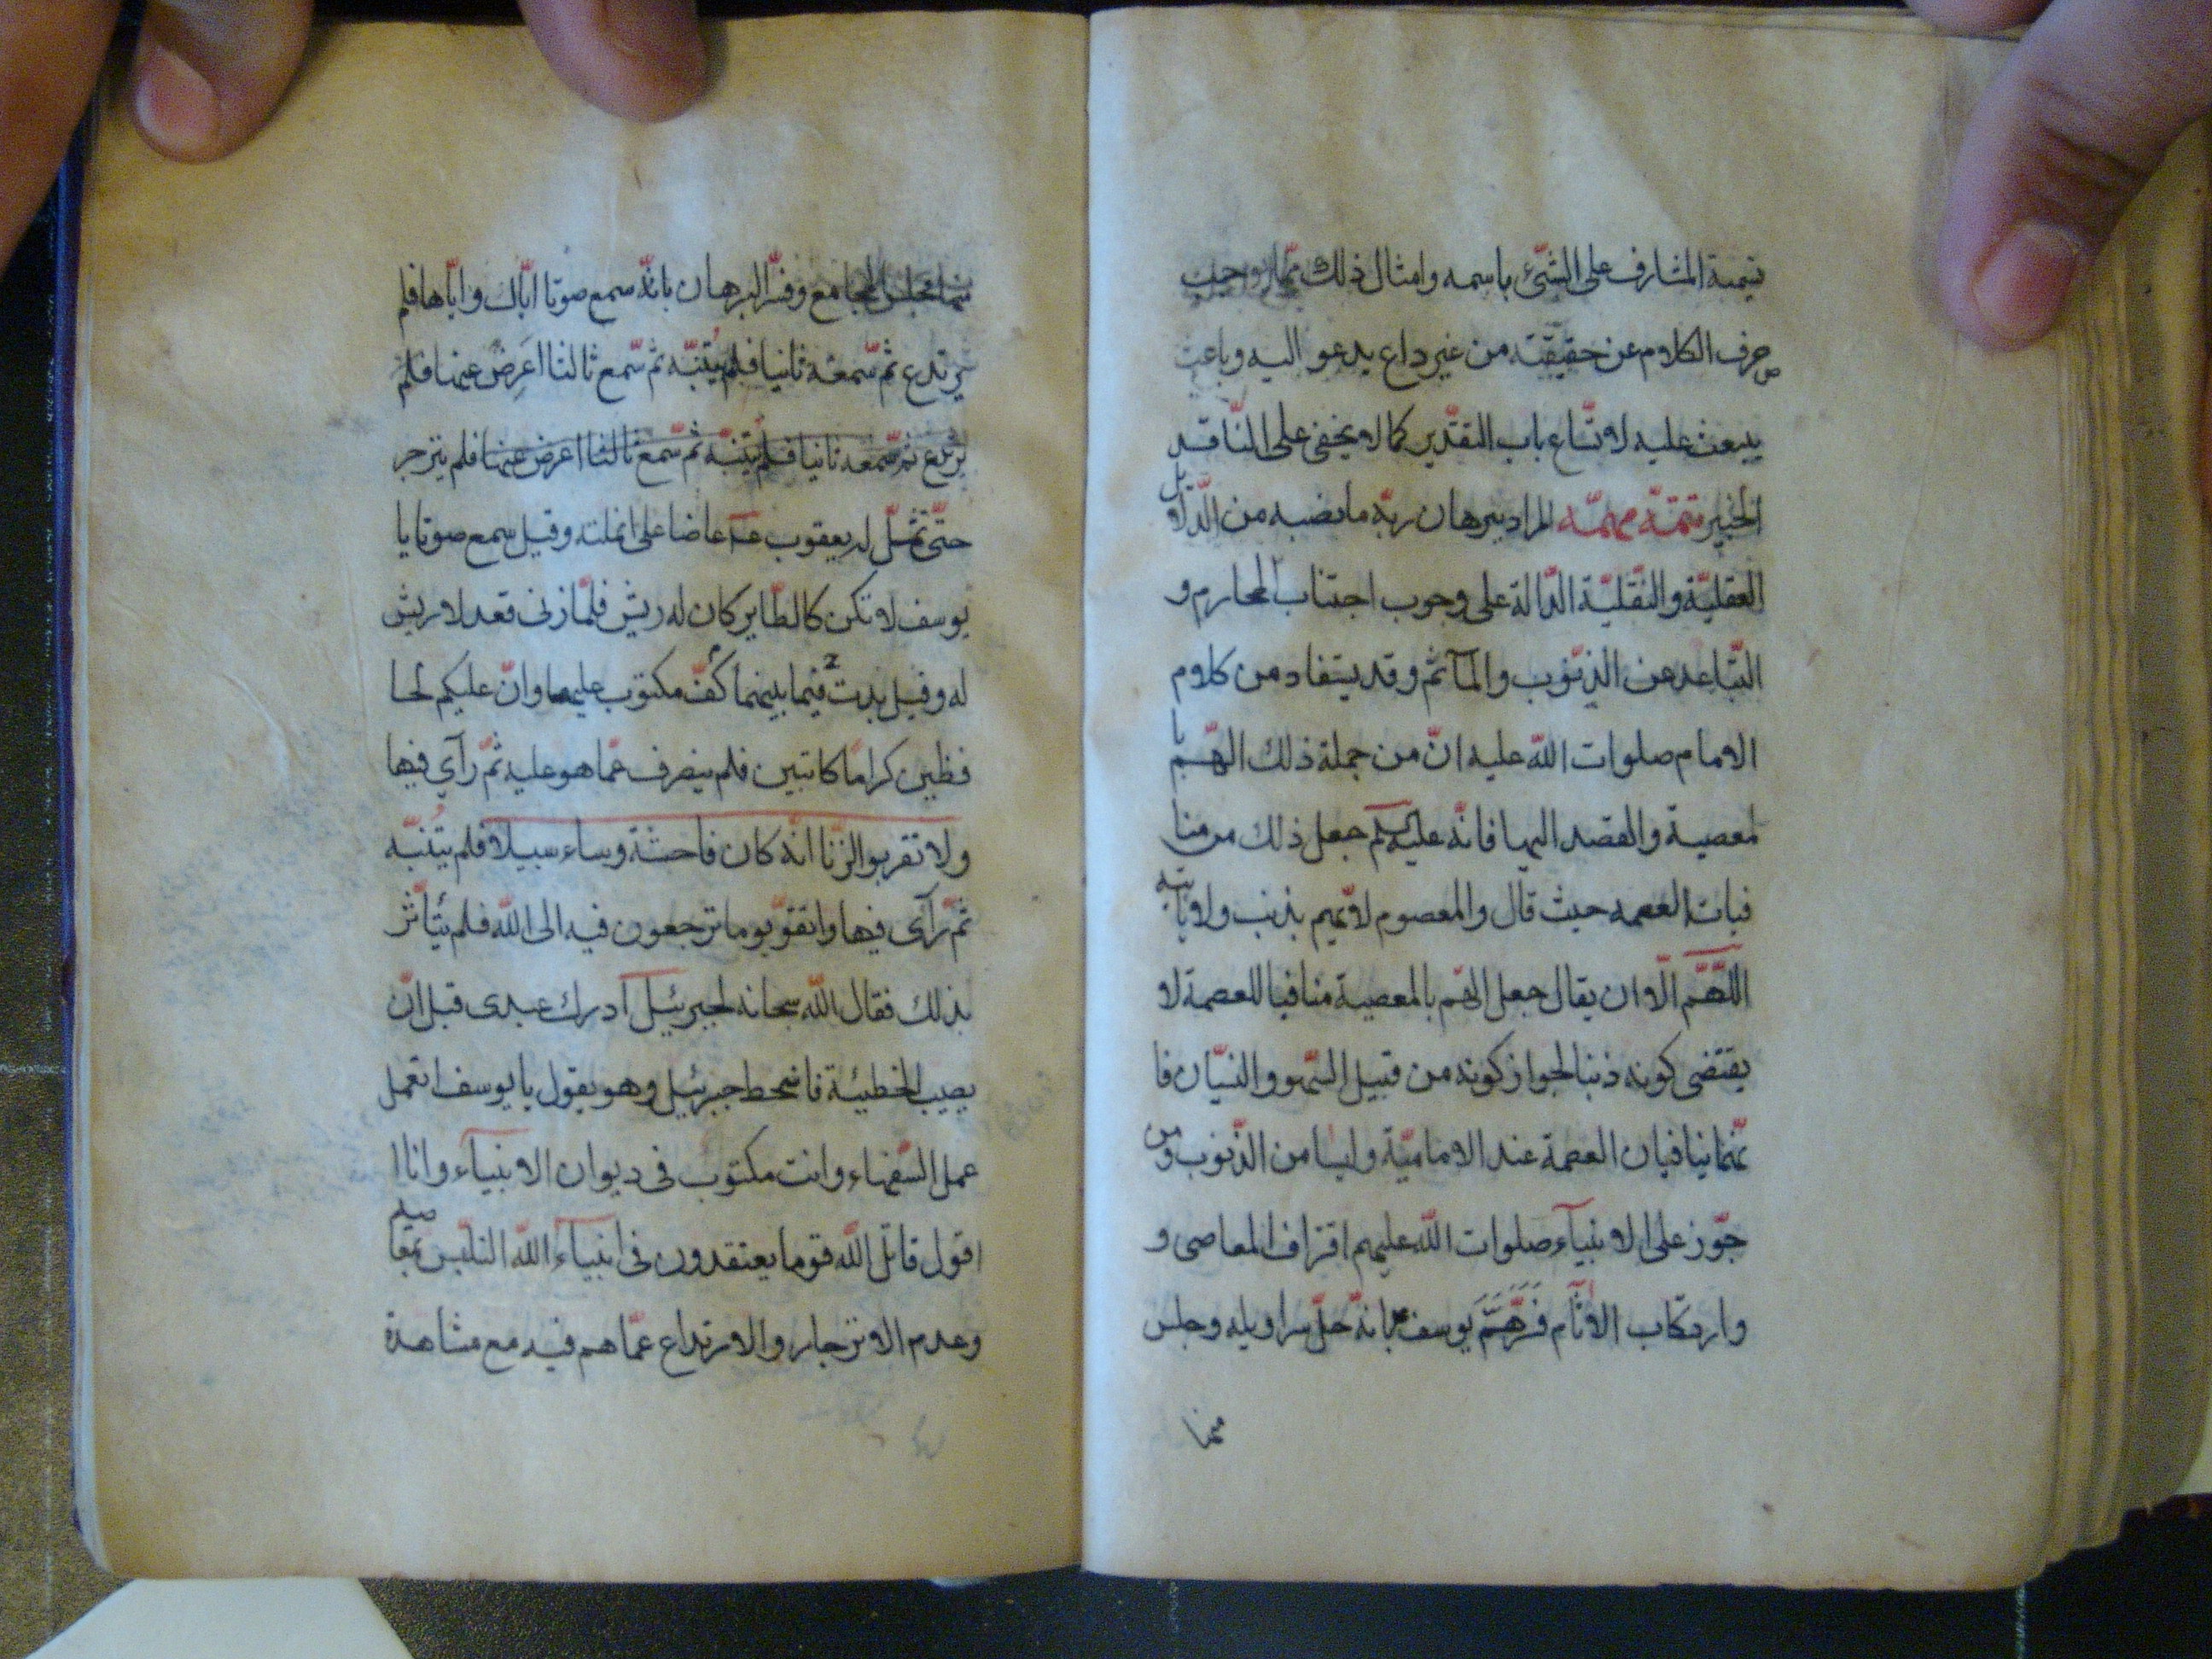 تسمية المشارف على الشىء باسمه وامثال ذلك ممّا يوجب
صرف الكلام عن حقيقته من غير داع يدعو اليه وباعث
يبعث عليه لاتساع باب التقدير كما لا يخفى على الناقد
الخبير تتمّة مهمّة المراد ببرهان ربّه ما نصبه من الدّلايل
العقليّة والنّقليّة الدّالة على وجوب اجتناب المحارم و
التّباعد عن الذنوب والمآثم وقد يستفاد من كلام
الامام صلوات اللّه عليه انّ من جملة ذلك الهّم با
لمعصية والقصد اليها فانّه عليه السلم جعل ذلك من منا
فيات العصمه حيث قال والمعصوم لا يهم بذنب ولا ياتيه
اللّهّم الّا ان يقال جعل الهّم بالمعصية منافيا للعصمة لا
يقتضى كونه ذنبا لجواز كونه من قبيل السّهو والنسيان فا
نّهما ينافيان العصمة عند الاماميّة وليسا من الذّنوب ومن
جوّز على الانبيآء صلوات اللّه عليهم اقتراف المعاصى و
وارتكاب الاثآم فسّر همّ يوسف بانّه حلّ سراويله وجلس
منها مجلس المجامع وفسّر البرهان بانّه سمع صوتا ايّاك وايّاها فلم
يرتدع ثم سمعه ثانيا فلم يتنبّه ثم سمع ثالثا اعرض عنها فلم
يرتدع ثم سمعه ثانيا فلم يتنبّه ثم سمع ثالثا اعرض عنها فلم ينزجر
حتّى تمثّل له يعقوب عاضا على انملته وقيل سمع صوتا يا
يوسف لا تكن كالطّاير كان له ريش فلمّا زنى قعد لا ريش
له وقيل بدت فيما بينهما كفّ مكتوب عليها وانّ عليكم لحا
فظين كراما كاتبين فلم ينصرف عمّا هو عليه ثمّ رآى فيها
ولا تقربوا الزّنا انّه كان فاحشة وساء سبيلا فلم يتنبّه
ثمّ رآى فيها واتقو يوما ترجعون فيه الى اللّه فلم يتأثّر
بذلك فقال اللّه سبحانه لجبرئيل ادرك عبدى قبل انّ
يصيب الخطيئة فانحط جبرئيل وهو يقول يا يوسف اتعمل
عمل السّفهاء وانت مكتوب فى ديوان الانبيآء وانا ا
اقول قاتل اللّه قوما يعتقدون فى انبيآء اللّه التلبّس
وعدم الانزجار والارتداع عمّا هم فيه مع مشاهدة